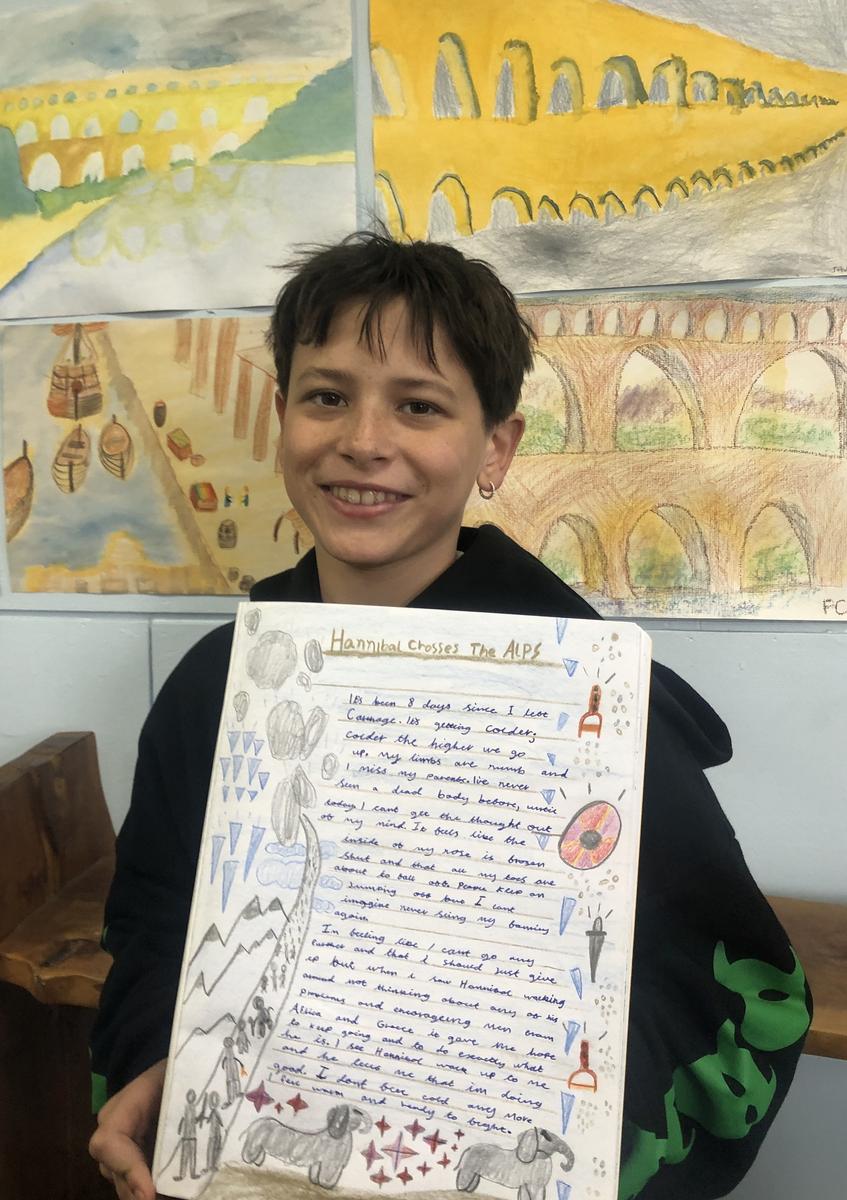 Hannibal Crosses The ALPS
It's been 8 days since I left
Carthage. It's getting colder,
colder the higher we go
up, my limbs are numb and
I miss my parents. I've never
seen a dead body before, until
today I cant get the thought out
of my mind. It feels like the
inside of my nose is frozen
shut and that all my toes are
about to fall off. People keep on
jumping off but I cant
imagine never seing my family
again
I'm feeling like I cant go any
further and that I should just give
up but when i saw Hannibal walking
around not thinking about any of his
problems and encourageing men from
Africa and Greece is gave me hope
to keep going and to do exactly what
he is. I see Hannibal walk up to me
and he tells me that im doing
good. I dont feel cold any more
I feel warm and ready to fight.
FC